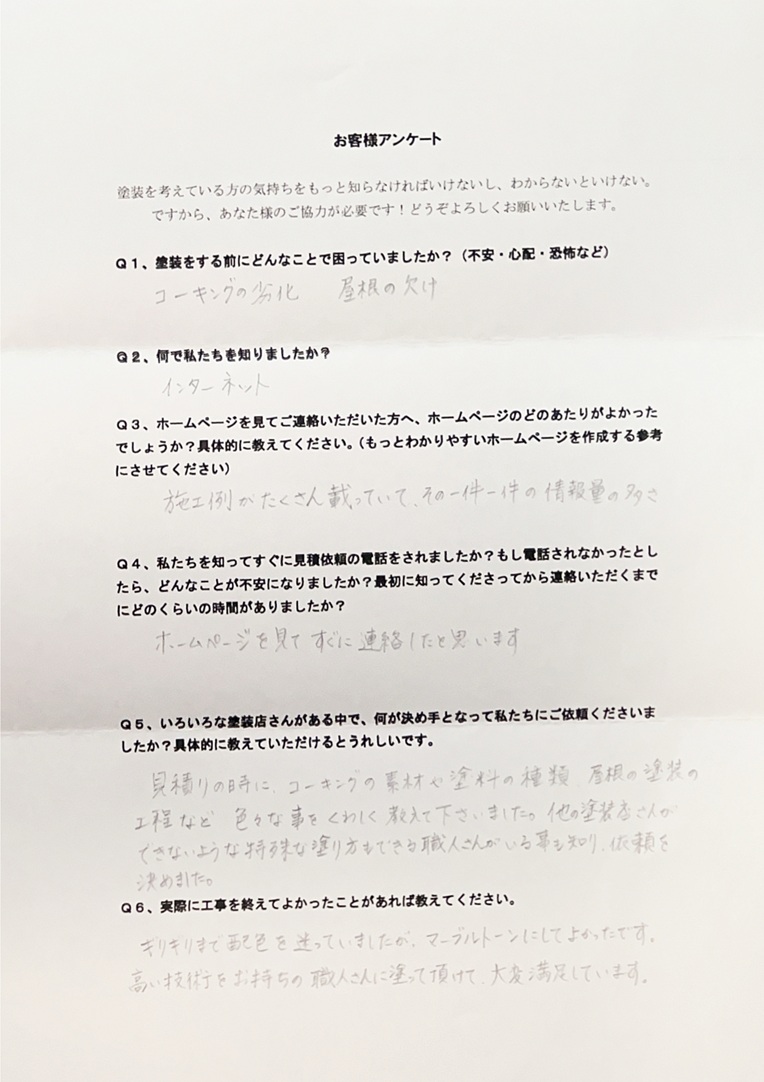 お客様アンケート
塗装を考えている方の気持ちをもっと知らなければいけないし、わからないといけない。
ですから、あなた様のご協力が必要です！どうぞよろしくお願いいたします。
Q１、塗装をする前にどんなことで困っていましたか？（不安・心配・恐怖など）
コーキングの劣化　屋根の欠け
Q２、何で私たちを知りましたか？
インターネット
Q３、ホームページを見てご連絡いただいた方へ、ホームページのどのあたりがよかった
でしょうか？具体的に教えてください。（もっとわかりやすいホームページを作成する参考
にさせてください）
施工例がたくさん載っていて、その一件一件の情報量の多さ
Q４、私たちを知ってすぐに見積依頼の電話をされましたか？もし電話されなかったとし
たら、どんなことが不安になりましたか？最初に知ってくださってから連絡いただくまで
にどのくらいの時間がありましたか？
ホームページを見てすぐに連絡したと思います
Q５、いろいろな塗装店さんがある中で、何が決め手となって私たちにご依頼くださいま
したか？具体的に教えていただけるとうれしいです。
見積りの時に、コーキングの素材や塗料の種類　屋根の塗装の
工程など　色々な事をくわしく教えて下さいました。他の塗装店さんが
できないような特殊な塗り方もできる職人さんがいる事も知り、依頼を
決めました。
Q６、実際に工事を終えてよかったことがあれば教えてください。
ギリギリまで配色を迷っていましたが、マーブルトーンにしてよかったです。
高い技術をお持ちの職人さんに塗って頂けて、大変満足しています。